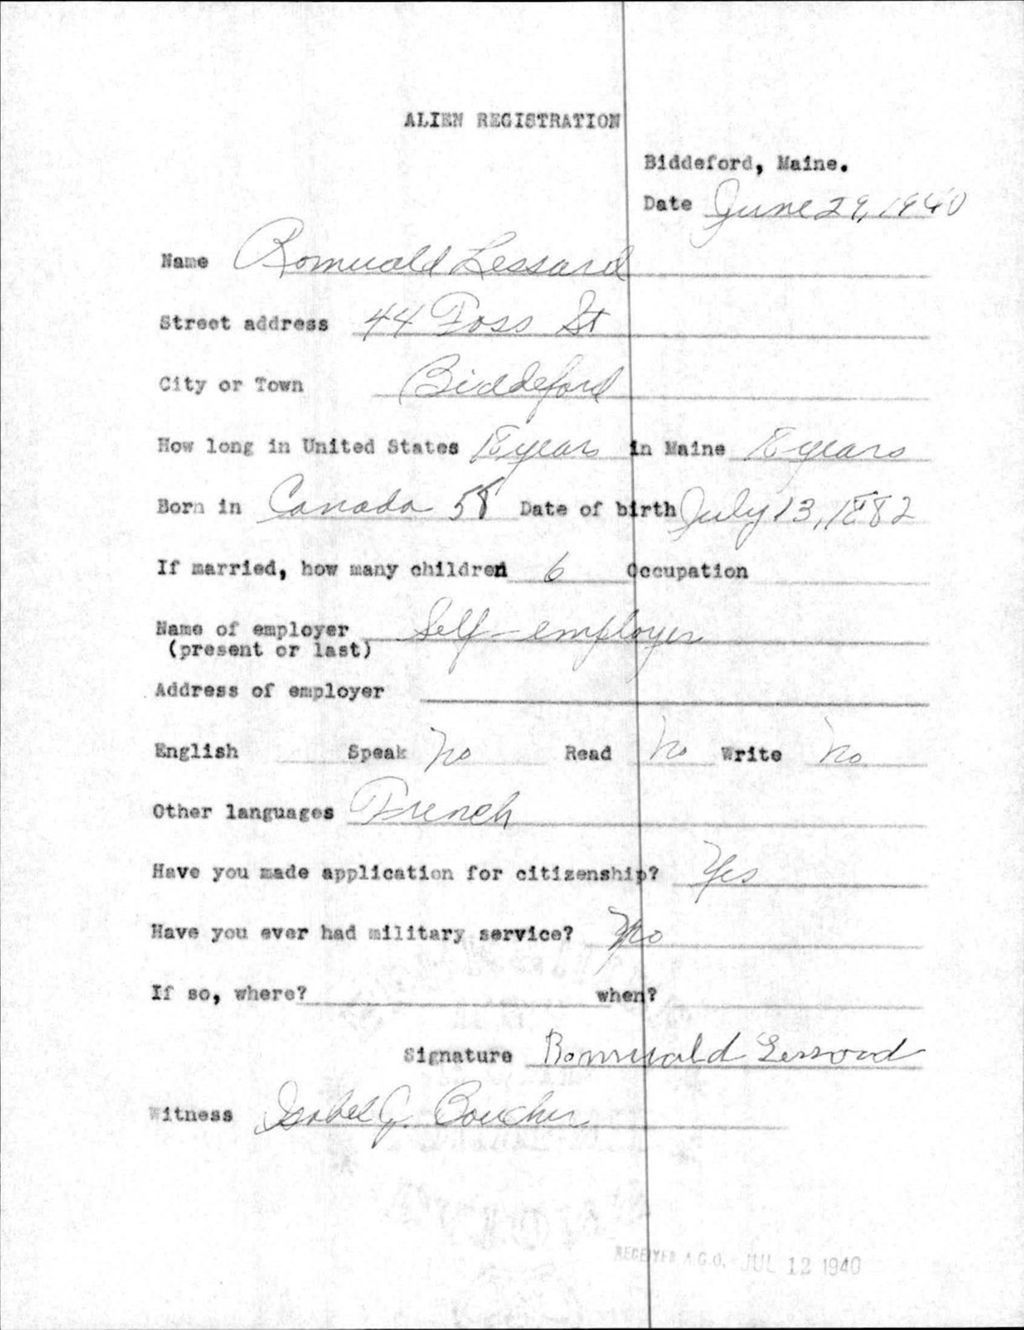 ALIEN REGISTRATION
Biddeford, Maine.
Date June 29, 1940
Name Romuald Lessard
Street address 44 Foss St
City or Town Biddeford
How long in United States 18 years in Maine 18 years
Born in Canada 58 Date of birth July 13, 1882
If married, how many children 6 Occupation
Name of employer Self-employer
(present or last)
Address of employer
English Speak no Read no Write no
Other languages French
Have you made application for citizenship? Yes
Have you ever had military service? No
If so, where? when?
Signature Romuald Lessard
Witness Isabel G. Boucher
RECEIVED A.G.O. JUL 12 1940